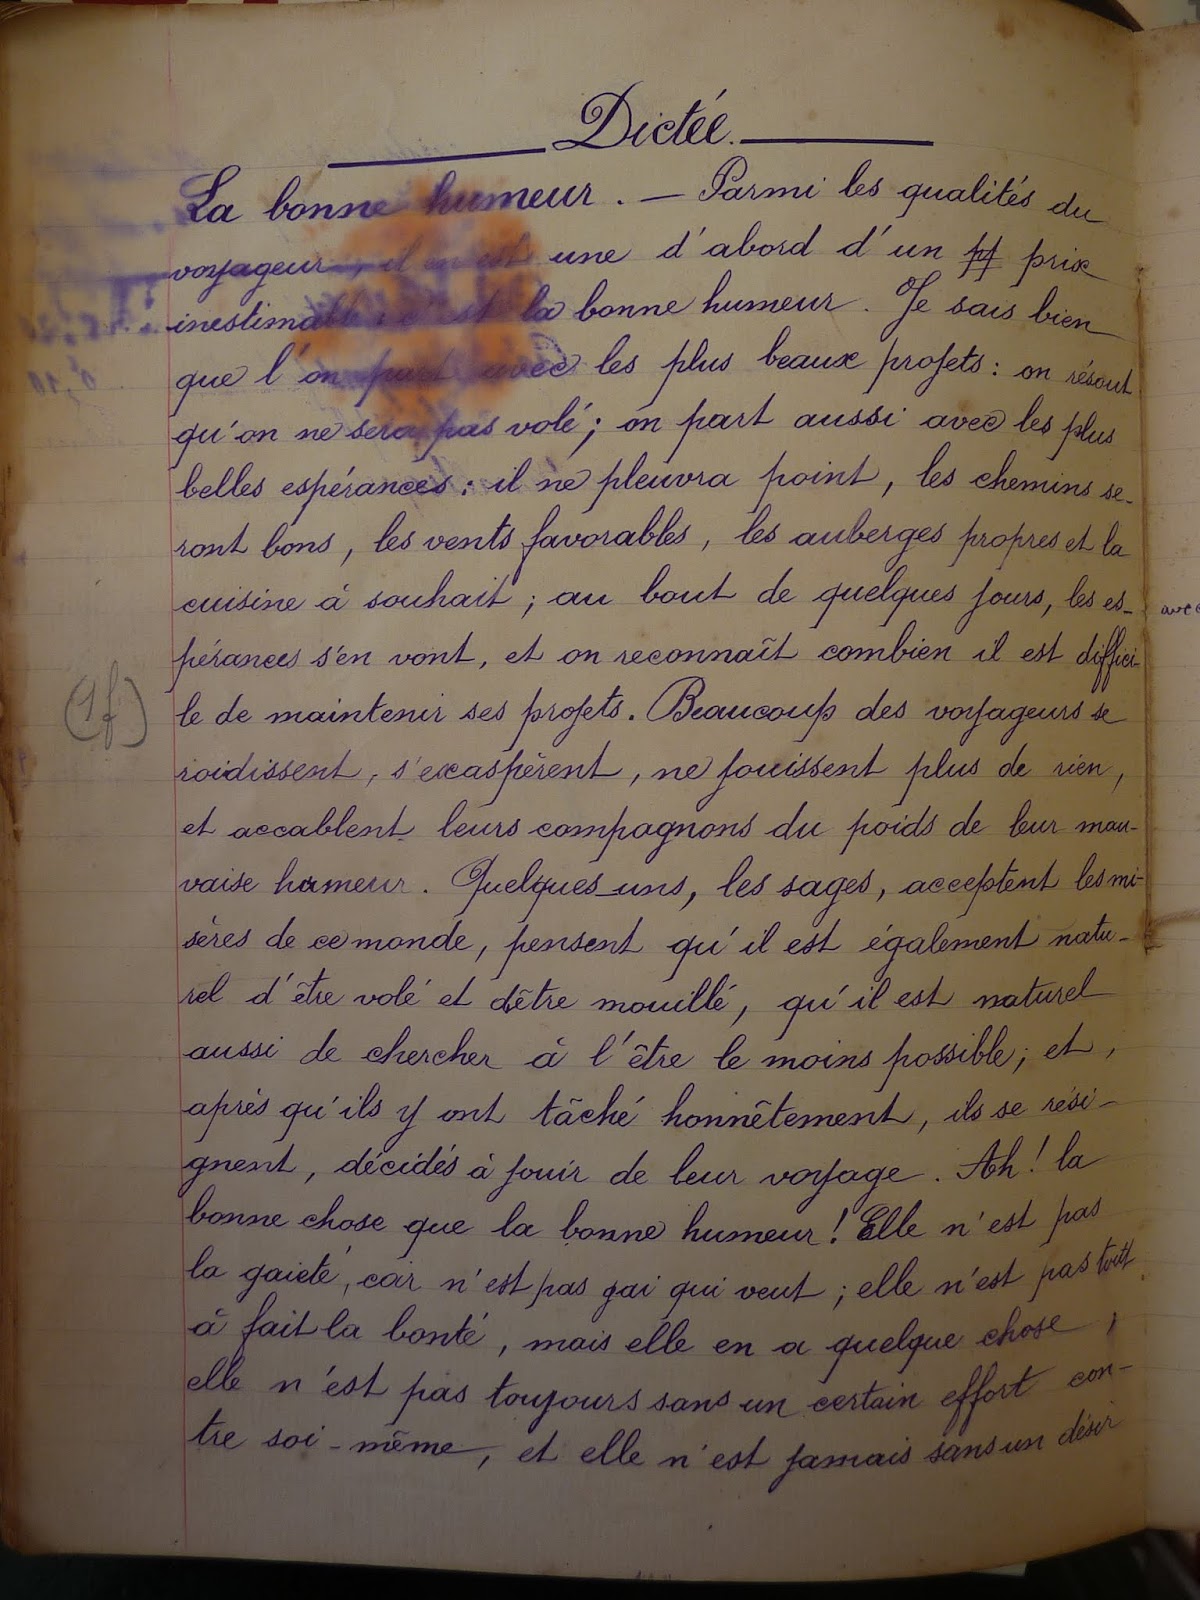 Dictée.
La bonne humeur. — Parmi les qualités du
voyageur, il en est une d'abord d'un prix
inestimable : c'est la bonne humeur. Je sais bien
que l'on part avec les plus beaux projets : on résout
qu'on ne sera pas volé ; on part aussi avec les plus
belles espérances : il ne pleuvra point, les chemins se-
ront bons, les vents favorables, les auberges propres et la
cuisine à souhait ; au bout de quelques jours, les es-
pérances s'en vont, et on reconnaît combien il est diffici-
(1f)
le de maintenir ses projets. Beaucoup des voyageurs se
roidissent, s'exaspèrent, ne jouissent plus de rien,
et accablent leurs compagnons du poids de leur mau-
vaise humeur. Quelques-uns, les sages, acceptent les mi-
sères de ce monde, pensent qu'il est également natu-
rel d'être volé et d'être mouillé, qu'il est naturel
aussi de chercher à l'être le moins possible ; et,
après qu'ils y ont tâché honnêtement, ils se rési-
gnent, décidés à jouir de leur voyage. Ah ! la
bonne chose que la bonne humeur ! Elle n'est pas
la gaieté, car n'est pas gai qui veut ; elle n'est pas tout
à fait la bonté, mais elle en a quelque chose ;
elle n'est pas toujours sans un certain effort con-
tre soi-même, et elle n'est jamais sans un désir
avec